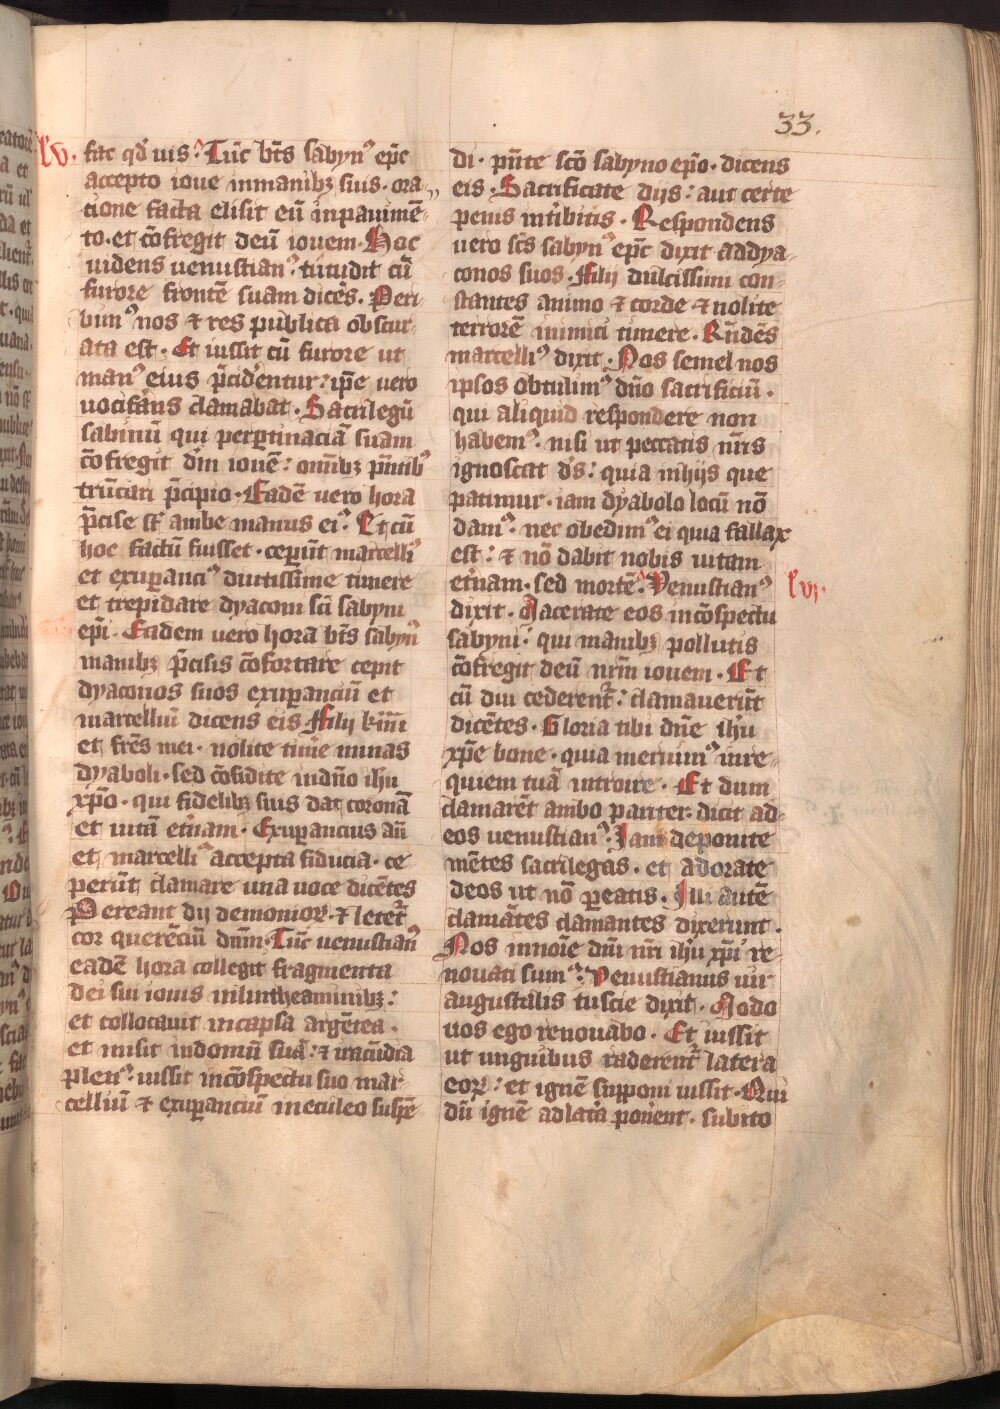 33.
l'v. fac qd̄ uis ⸵ Tūc bt̄s sabyn᷒ ep̄c
accepto ioue inmanibꝫ suis · ora„
tione facta elisit eū inpauimē-
to · et ꝯ̄fregit deū iouem · Hoc
uidens uenustian᷒ · tutudit cū
furore frontē suam dicēs . Peri-
bim᷒ nos ⁊ res publica obscur-
ata est · Et iussit cū furore ut
man᷒ eius p̄cid̕entur : ip̄e uero
uocifāns clamabat · Sacrilegū
sabinū qui perꝑtinaciā suam
cōfregit dm̄ iouē : omībꝫ pn̄tibꝫ
trūcari p̄cipio · Eadē uero hora
p̄cise st̄ ambe manus ei᷒ . Et cū
hoc factū fuisset · ceperūt marcell᷒
et exuꝑanci᷒ diutissime timere
et trepidare dyaconi sc̄i sabyni
ep̄i · Eadem uero hora bt̄s sabyn᷒
manibꝫ p̄cisis cōfortare cepit
dyaconos suos exuꝑanciū et
marcelliū dicens eis Filij km̄i
et frēs mei · nolite tim̕e minas
dyaboli · sed cōfidite indn̄o ihū
xp̄o · qui fidelibꝫ suis dat coronā
et uitā et̕nam · Exuꝑancius aū
et marcelli᷒ accepta fiducia · ce
perūt clamare una uoce dicētes
Pereant dij demonioꝝ · ⁊ letet᷑
cor querēciū dnm̄ · Tūc uenustian᷒
eadē hora collegit fragmenta
dei sui iouis inlintheaminibꝫ :
et collocauit incapsa argētea ·
et misit indomū suā : ⁊ iracūdia
plen᷒ · iussit incōspectu suo mar-
celliū ⁊ exuꝑanciū ineculeo suspē
di · pn̄te sc̄o sabyno ep̄o · dicens
eis · Sacrificate dijs : aut certe
penis int̕ibitis · Respondens
uero sc̄s sabyn᷒ ep̄c dixit addya-
conos suos · Filij dulcissimi con-
stantes animo ⁊ corde ⁊ nolite
terrorē inimici timere · Rn̄dēs
marcelli᷒ dixit · Nos semel nos
ipsos obtulim᷒ dn̄o sacrificiū ·
qui aliquid respondere non
habem᷒ · nisi ut peccatis nr̄is
ignoscat d̄s : quia inhijs que
patimur · iam dyabolo locū nō
dam᷒ · nec obedim᷒ ei quia fallax
est : ⁊ nō dabit nobis uitam
et̕nam · sed mortē ⸵ Venustian᷒ l'vj ·
dixit · Lacerate eos incōspectu
sabyni : qui manibꝫ pollutis
cōfregit deū nr̄m iouem · Et
cū diu cederent᷑ : clamauerūt
dicētes · Gloria tibi dn̄e ihū
xp̄e bone · quia meruim᷒ inre-
quiem tuā introire · Et dum
clamarēt ambo pariter · dicit ad-
eos uenustian᷒ · Jam deponite
mētes sacrilegas · et adorate
deos ut nō ꝑeatis · Illi autē
clamātes clamantes dixerunt ·
Nos innoīe dn̄i nr̄i ihū xp̄i re-
nouati sum᷒ · Venustianus uir
augustalis tuscie dixit · Modo
uos ego renouabo · Et iussit
ut unguibus raderent᷑ latera
eoꝝ : et ignē supponi iussit · Qui
dū ignē adlat̕a pon̕ent · subito